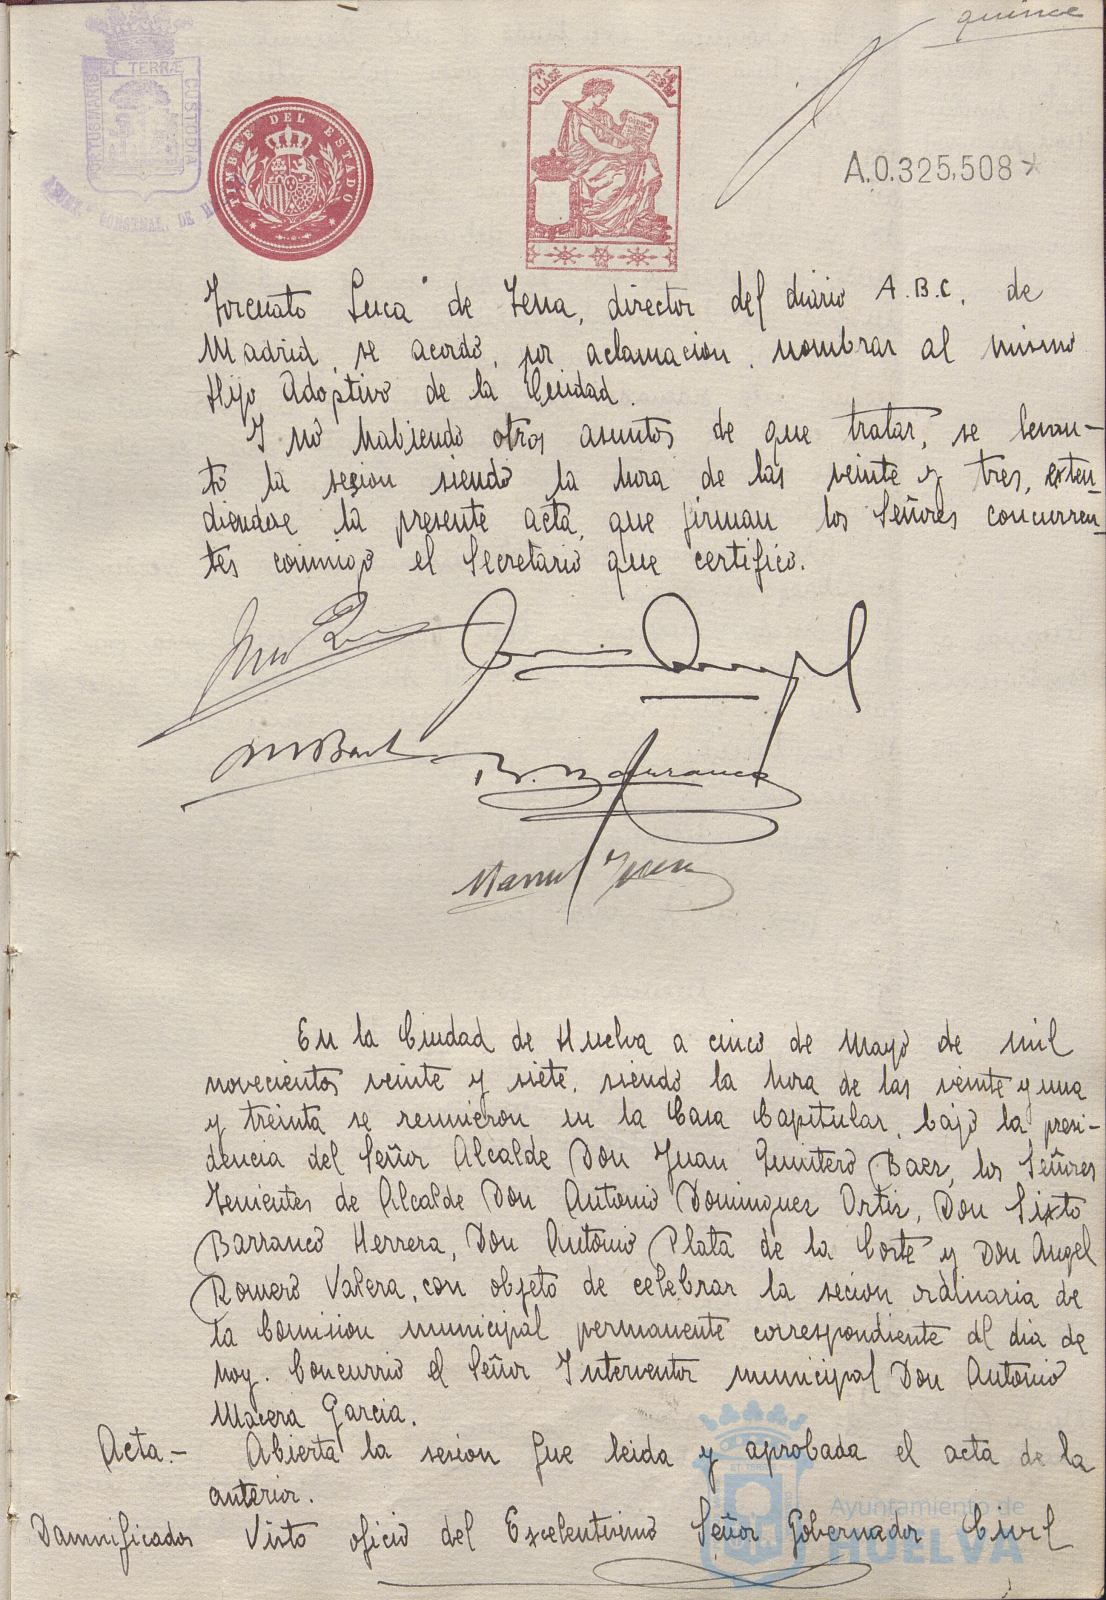 quince
ET TERRÆ
PORTUS MARIS
CUSTODIA
CONSTNAL. DE H
TIMBRE DEL ESTADO
CLASE
PESETAS
A.0.325,508
Torcuato Luca de Tena, director del diario A.B.C. de
Madrid, se acordó, por aclamacion, nombrar al mismo
Hijo Adoptivo de la Ciudad.
Y no habiendo otros asuntos de que tratar, se levan-
tó la sesion siendo la hora de las veinte y tres, exten-
diendose la presente acta, que firman los Señores concurren-
tes conmigo el Secretario que certifico.
Manuel
En la Ciudad de Huelva a cinco de Mayo de mil
novecientos veinte y siete, siendo la hora de las veinte y una
y treinta se reunieron en la Casa Capitular, bajo la presi-
dencia del Señor Alcalde Don Juan Quintero Baez, los Señores
Tenientes de Alcalde Don Antonio Dominguez Ortiz, Don Sixto
Barranco Herrera, Don Antonio Plata de la Corte y Don Angel
Romero Valera, con objeto de celebrar la secion ordinaria de
la Comision municipal permanente correspondiente al dia de
hoy. Concurrió el Señor Interventor municipal Don Antonio
Macera Garcia.
Acta.- Abierta la sesion fue leida y aprobada el acta de la
anterior.
Damnificados Visto oficio del Excelentisimo Señor Gobernador Civil
Ayuntamiento de
HUELVA